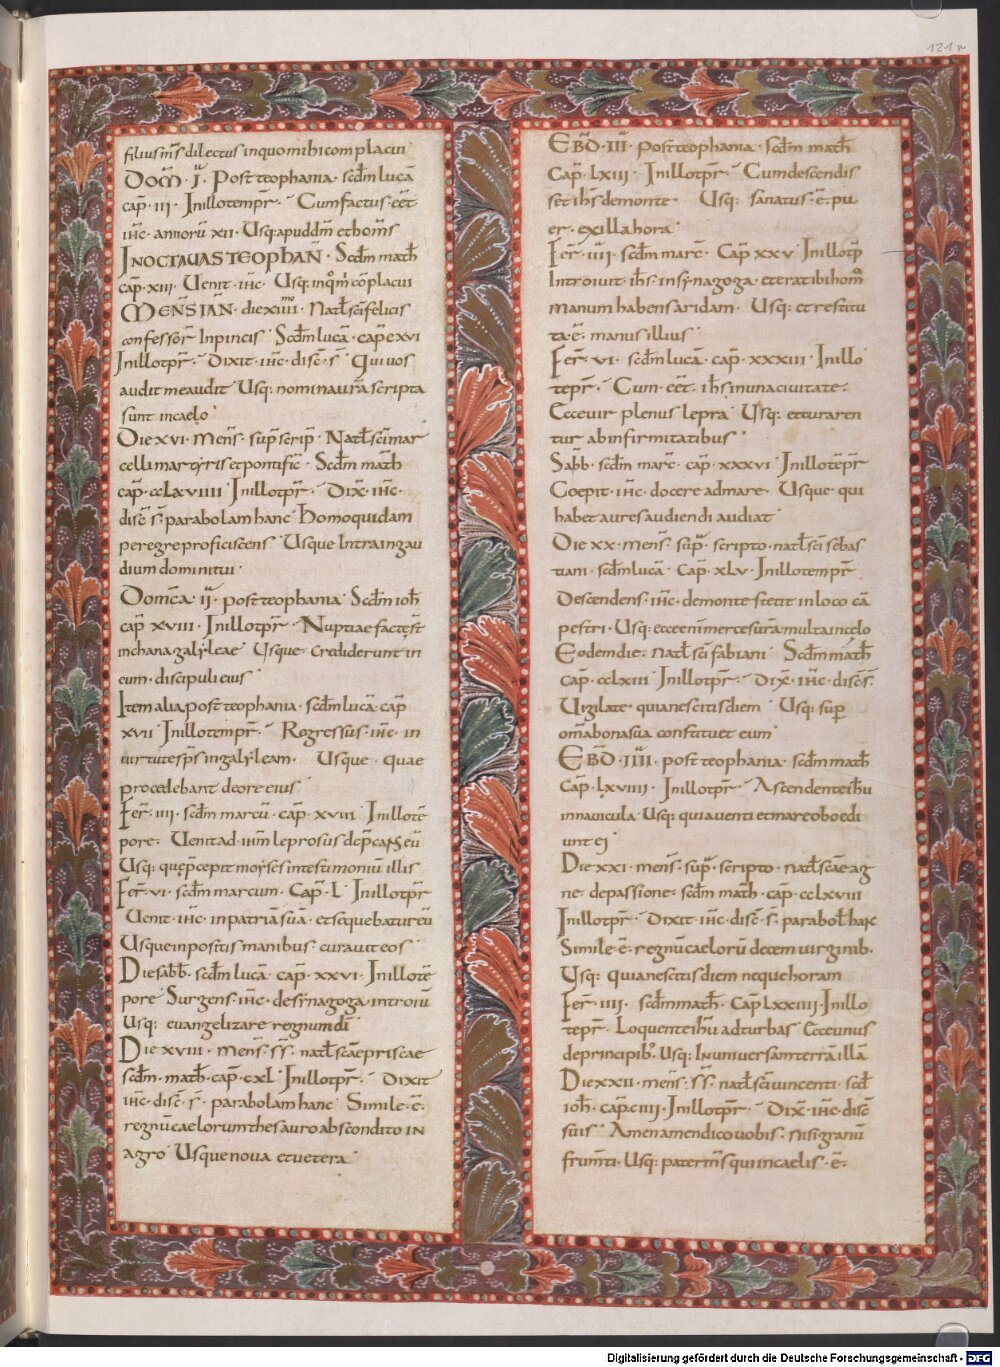 121r
filius m̄s dilectus in quo mihi complacui
DOM̄ · II · Post teophania · scd̄m lucā
cap̄ · III · In illo temp̄r · Cum factus · eēt
ih̄c · annorū XII · Usq: apud dm̄ et hom̄s
IN OCTAVAS TEOPHAN̄ · Scd̄m math̄
cap̄ · XIII · Uenit · ih̄c · Usq: in q̊ m̍ cōplacui
MENS̄ IAN̄ · die XIIII mo · Natl̄ sc̄i felicis
confessor̄ In pincis · Scd̄m lucā · cap̄ CXVI
In illo tp̄r · Dixit · ih̄c · disc̄ · s̄ · Qui uos
audit me audit · Usq: nomina ur̄a scripta
sunt in caelo
Die XVI · Mens̄ · sup̄ scrip̄ · Natl̄ sc̄i mar
celli martyris et pontific̄ · Scd̄m math̄
cap̄ · CCLXVIIII · In illo tp̄r · Dix̄ · ih̄c ·
disc̄ s̄ · parabolam hanc · Homo quidam
peregre proficiscens · Usque Intra in gau
dium domini tui ·
Domc̄a II · post teophania · Scd̄m ioh̄
cap̄ XVIII · In illo tp̄r · Nuptiae factę st̄
in chana galyleae · Usque · Crediderunt in
eum · discipuli eius
Item alia post teophania · scd̄m lucā · cap̄
XVII · In illo temp̄r · Regressus · ih̄c · in
uirtute sp̄s in galyleam · Usque · quae
procedebant de ore eius
Fer̄ · IIII · scd̄m marcū · cap̄ · XVIII · In illo tē
pore · Uenit ad ih̄m leprosus dep̄cans eū
Usq: quę p̄cepit moyses in testimoniū illis
Fer̄ · VI · scd̄m marcum · Cap̄ · L · In illo tp̄r
Uenit · ih̄c · in patriā suā · et sequebatur eū
Usque inpositis manibus · curauit eos
Die sabb̄ · scd̄m lucā · cap̄ · XXVI · In illo tē
pore · Surgens · ih̄c · de synagoga · introiū
Usq: euangelizare regnum dī
Die XVIII · mens̄ · s̄s̄ · natl̄ sc̄ae priscae
scd̄m · math̄ · cap̄ · CXL · In illo tp̄r · Dixit
ih̄c · disc̄ · s̄ · parabolam hanc · Simile · ē ·
regnū caelorum thesauro abscondito IN
agro · Usque noua et uetera
EBD̄ · III · Post teophania · scd̄m math̄
Cap̄ · LXIII · In illo tp̄r · Cum descendis
set ih̄s de monte · Usq: sanatus · ē · pu
er · ex illa hora
Fer̄ · IIII · scd̄m marc̄ · Cap̄ XXV · In illo tp̄
Introiuit · ih̄s · in synagoga · et erat ibi homo
manum habens aridam · Usq: et restitu
ta · ē · manus illius
Fer̄ · VI · scd̄m lucā · cap̄ · XXXIII · In illo
tēpr̄ · Cum · eēt · ih̄s in una ciuitate ·
Ecce uir plenus lepra · Usq: et curaren
tur ab infirmitatibus ·
Sabb̄ · scd̄m marc̄ · cap̄ · XXXVI · In illo tēpr̄
Coepit · ih̄c · docere ad mare · Usque qui
habet aures audiendi audiat
Die XX · mens̄ · sup̄ · scripto · natl̄ sc̄i sebas
tiani · scd̄m lucā · Cap̄ · XLV · In illo temp̄r
Descendens · ih̄c · de monte stetit in loco cā
pestri · Usq: ecce enī merces ur̄a multa in celo
Eodem die · Natl̄ sc̄i fabiani · Scd̄m math̄
Cap̄ · CCLXIII · In illo tp̄r · Dix̄ · ih̄c · disc̄ · s̄ ·
Uigilate · quia nescitis diem · Usq: sup̄
om̄a bona sua constituet eum
EBD̄ · IIII · post teophania · scd̄m math̄
Cap̄ · LXVIIII · In illo tp̄r · Ascendente ih̄u
in nauicula · Usq: quia uenti et mare oboedi
unt ei
Die XXI · mens̄ · sup̄ · scripto · natl̄ sc̄ae ag
ne · de passione · scd̄m math̄ · cap̄ · CCLXVIII
In illo tp̄r · Dixit · ih̄c · disc̄ · s̄ · parabol̄ hac
Simile · ē · regnū caelorū decem uirginib ·
Usq: quia nescitis diem neque horam
Fer̄ · IIII · scd̄m math̄ · Cap̄ LXXIIII · In illo
tēpr̄ · Loquente ih̄u ad turbas · Ecce unus
de principib: Usq: In uniuersam terrā illā
Die XXII · mens̄ · s̄s̄ · natl̄ sc̄i uincenti · scd̄
ioh̄ · cap̄ · CIIII · In illo tp̄r · Dix̄ · ih̄c · disc̄
suis · Amen amen dico uobis · nisi granū
frumti · Usq: pater m̄s qui in caelis · ē ·
Digitalisierung gefördert durch die Deutsche Forschungsgemeinschaft - DFG